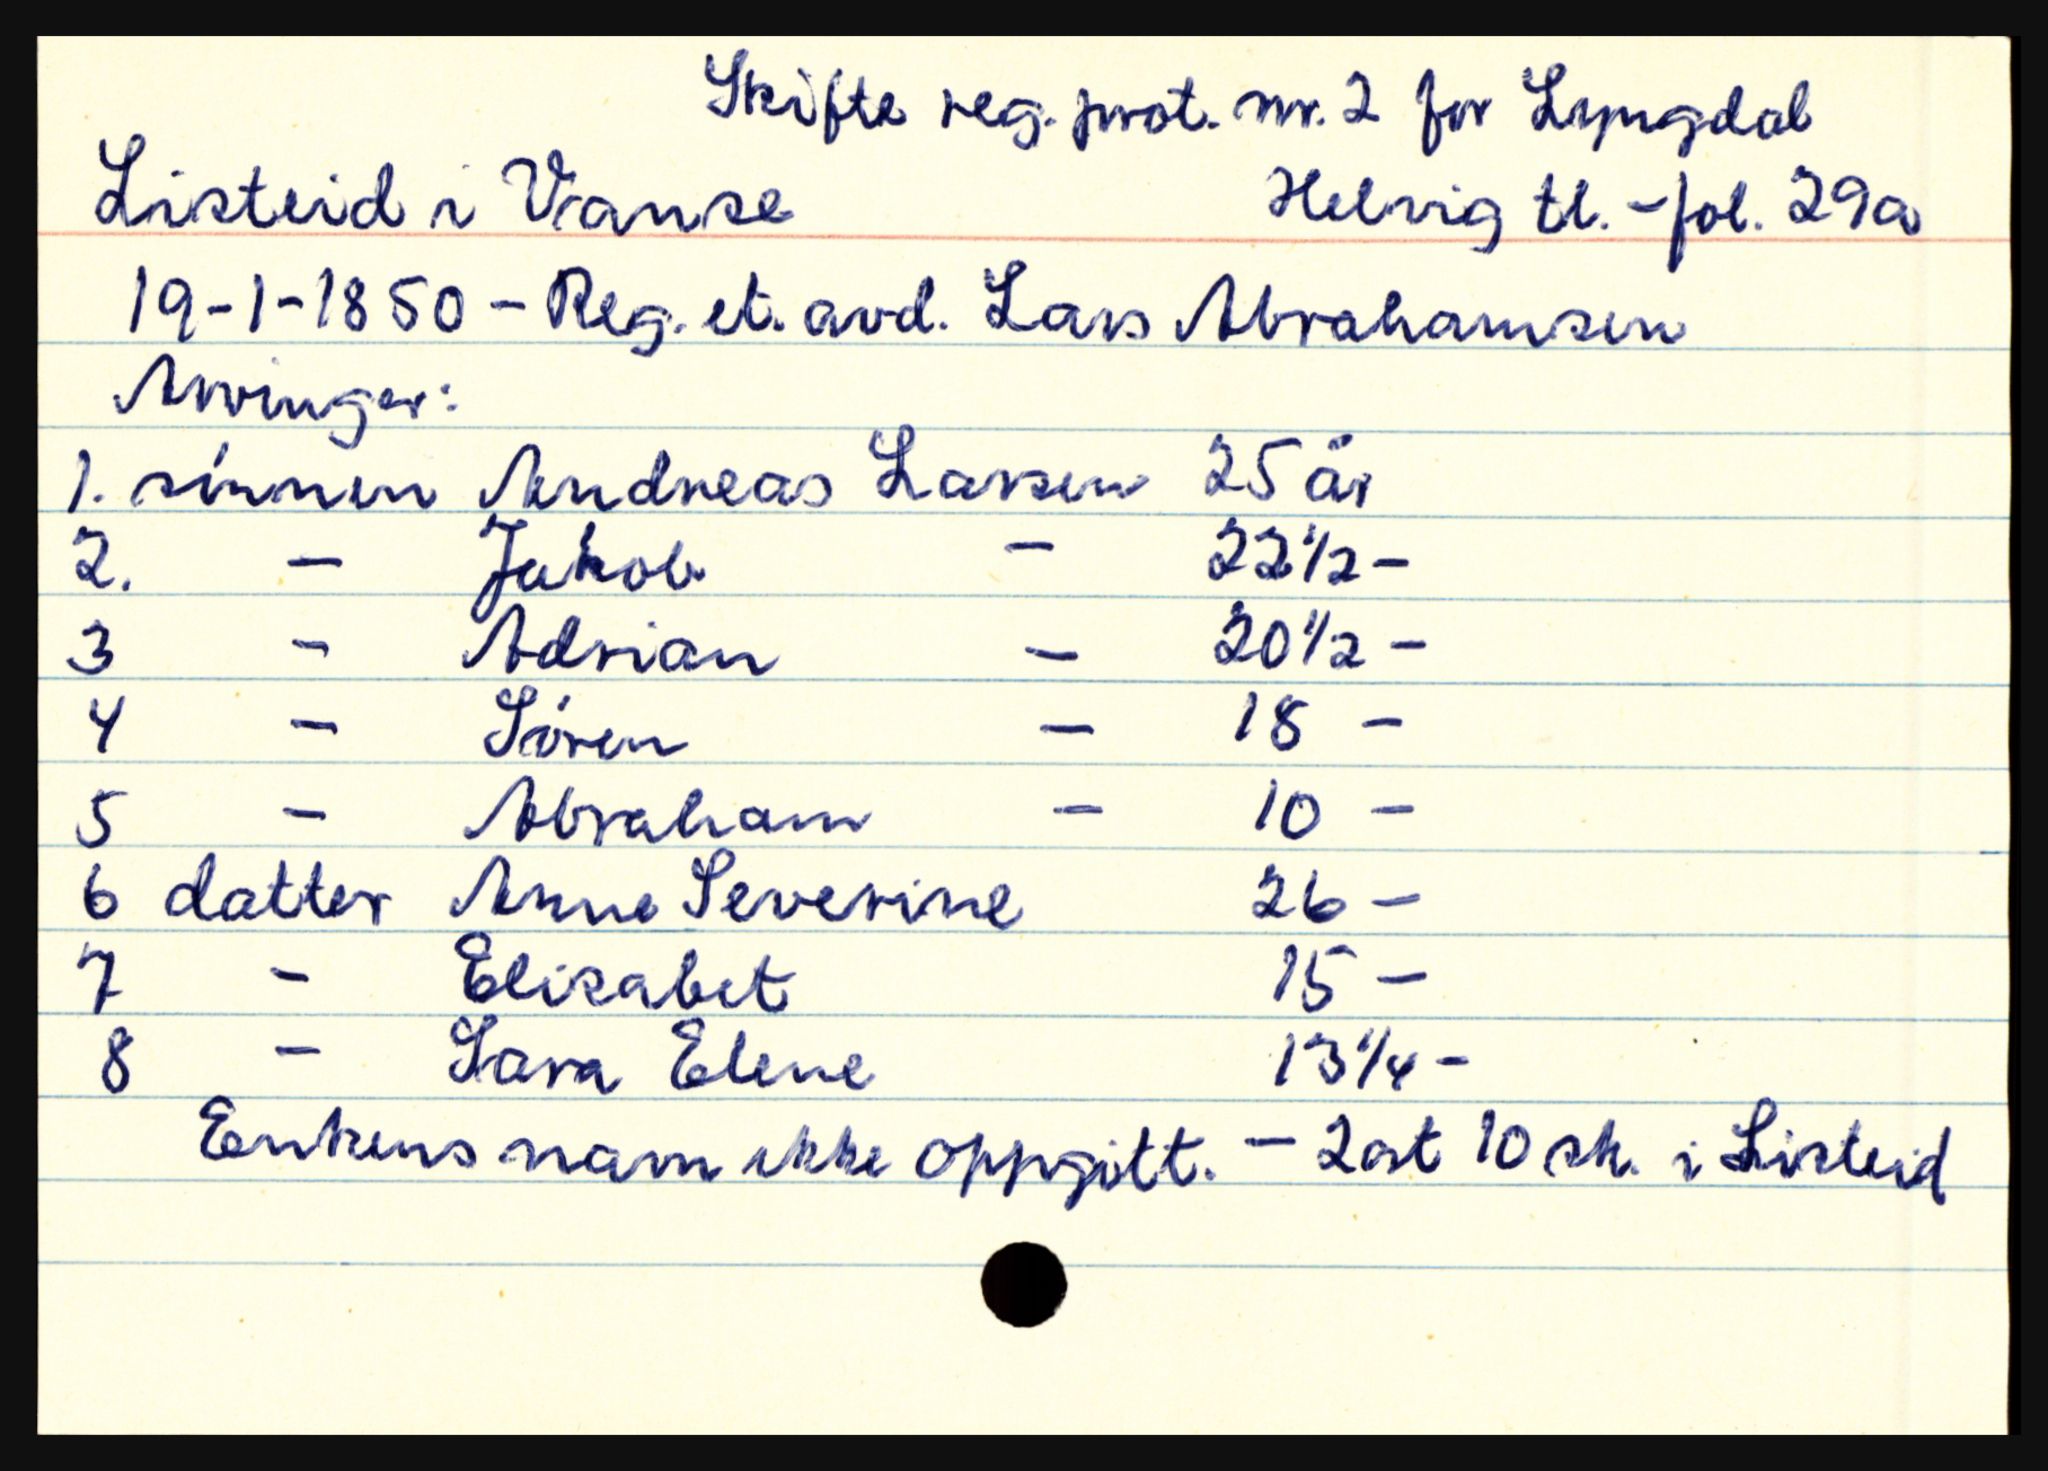 Skifte reg. prot. nr. 2 for Lyngdal
Listeid i Vanse Helvig tl. - fol. 29a
19-1-1850 - Reg. et. avd. Lars Abrahamsen
Arvinger:
1. sönnen Andreas Larsen 25 år
2. - Jakob - 22 1/2 -
3 - Adrian - 20 1/2 -
4 - Sören - 18 -
5 - Abraham - 10 -
6 datter Anne Severine 26 -
7 - Elisabet 15 -
8 - Sara Elene 13 1/4 -
Enkens navn ikke oppgitt. - 2 ort 10 sk. i Listeid